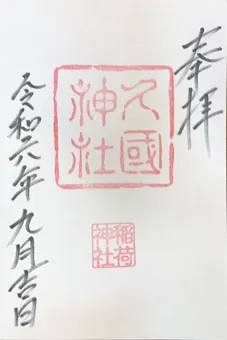 奉拝
久國
神社
稲荷
神社
令和六年九月吉日